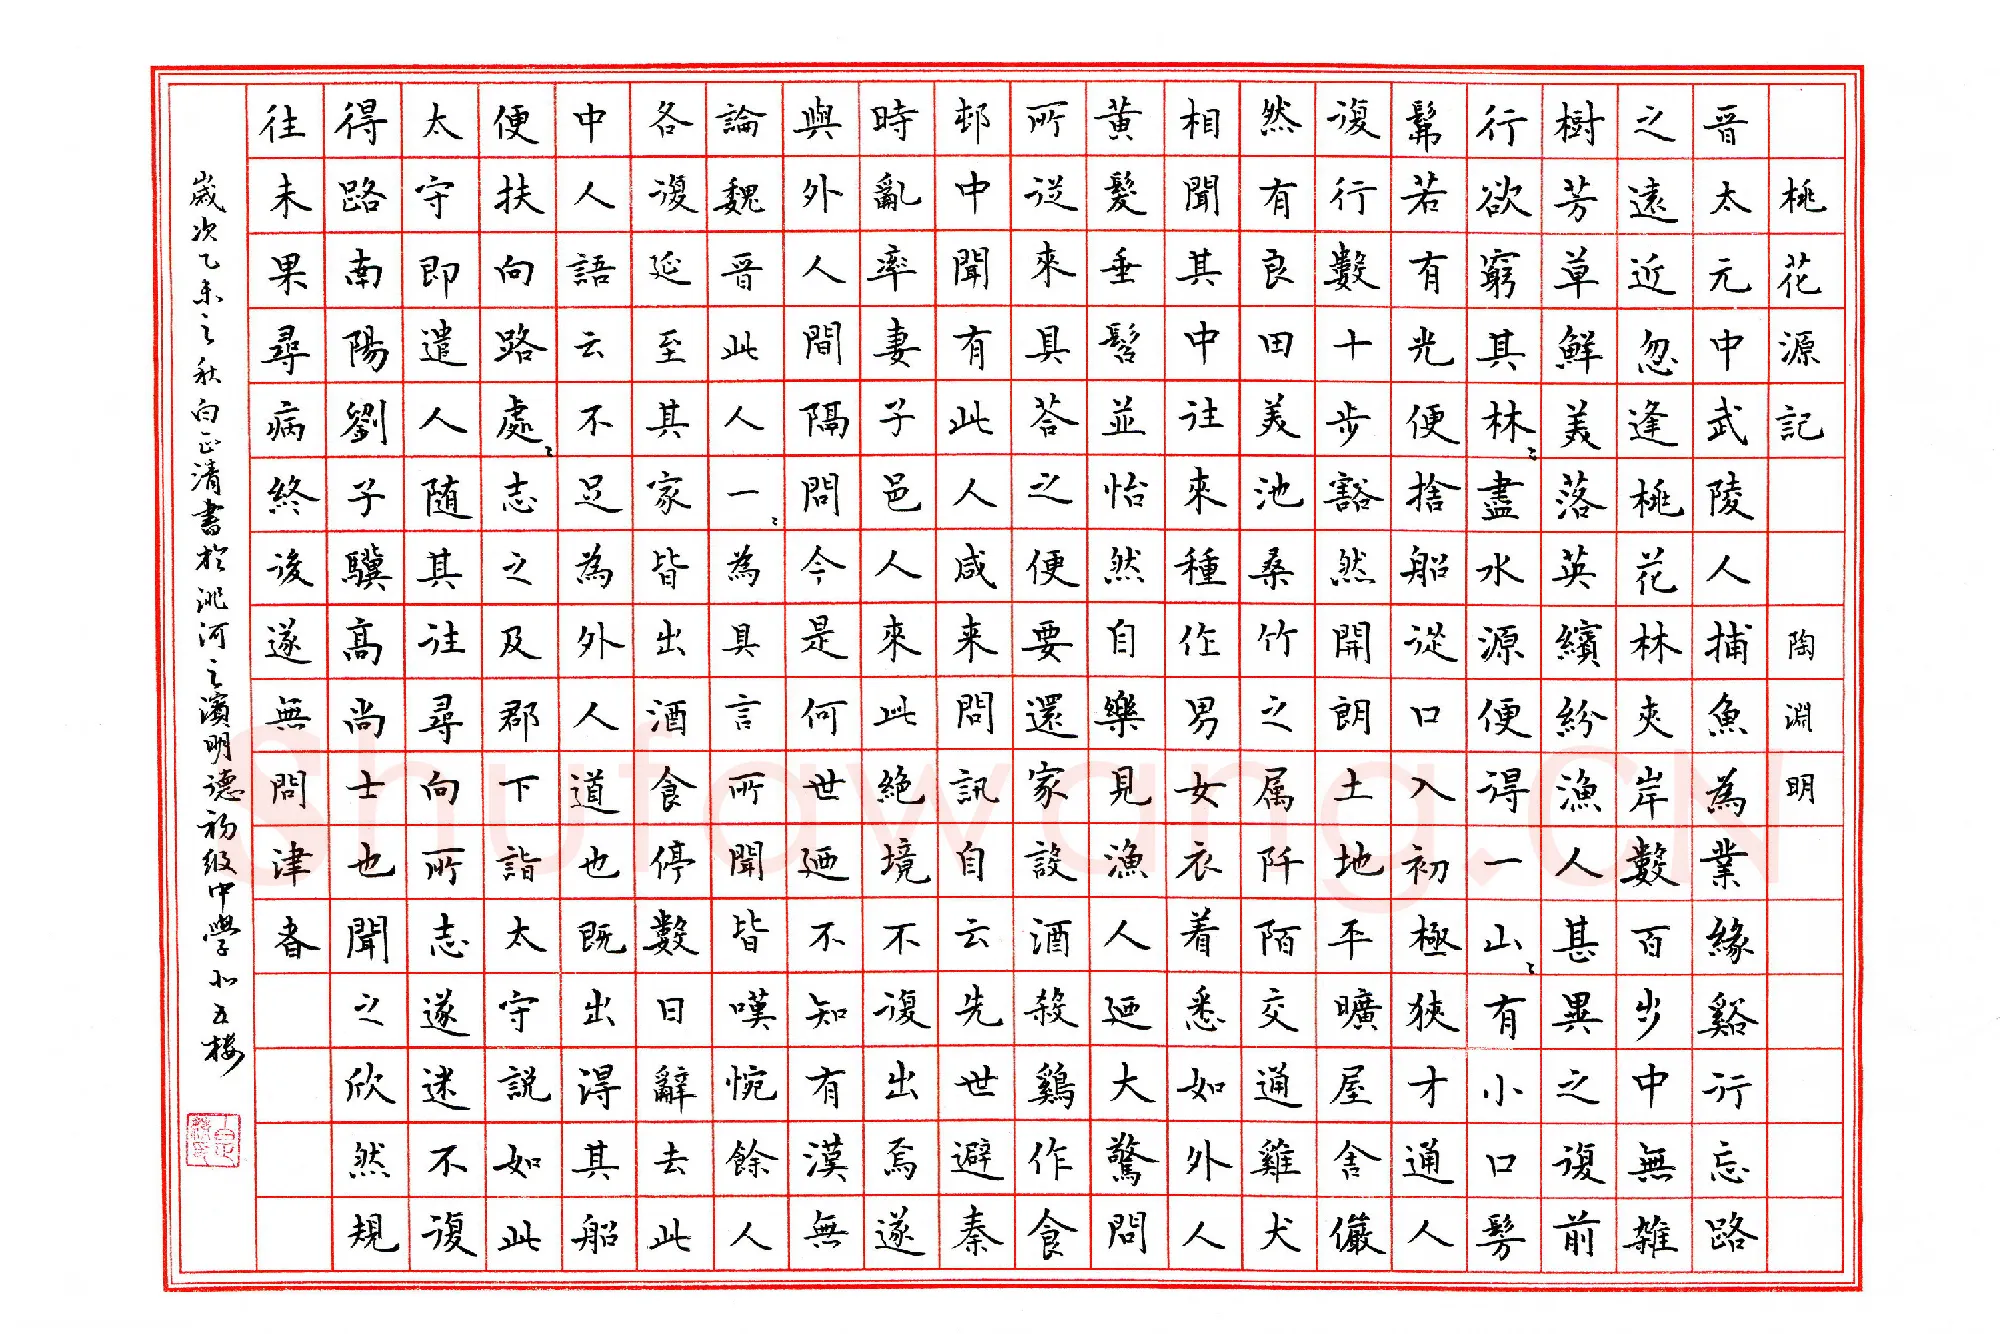 桃花源記 陶淵明
晉太元中武陵人捕魚為業緣谿行忘路
之遠近忽逢桃花林夾岸數百步中無雜
樹芳草鮮美落英繽紛漁人甚異之復前
行欲窮其林〻盡水源便得一山〻有小口髣
髴若有光便捨船從口入初極狹才通人
復行數十步豁然開朗土地平曠屋舍儼
然有良田美池桑竹之属阡陌交通雞犬
相聞其中往來種作男女衣着悉如外人
黃髮垂髫並怡然自樂見漁人迺大驚問
所從來具荅之便要還家設酒殺鷄作食
邨中聞有此人咸来問訊自云先世避秦
時亂率妻子邑人來此絕境不復出焉遂
與外人間隔問今是何世迺不知有漢無
論魏晉此人一〻為具言所聞皆嘆惋餘人
各復延至其家皆出酒食停數日辭去此
中人語云不足為外人道也既出得其船
便扶向路處〻志之及郡下詣太守說如此
太守即遣人随其往尋向所志遂迷不復
得路南陽劉子驥高尚士也聞之欣然規
往未果尋病終後遂無問津者
歲次乙未之秋白正清書於洮河之濱明德初級中學北五樓
Shufawang.CN